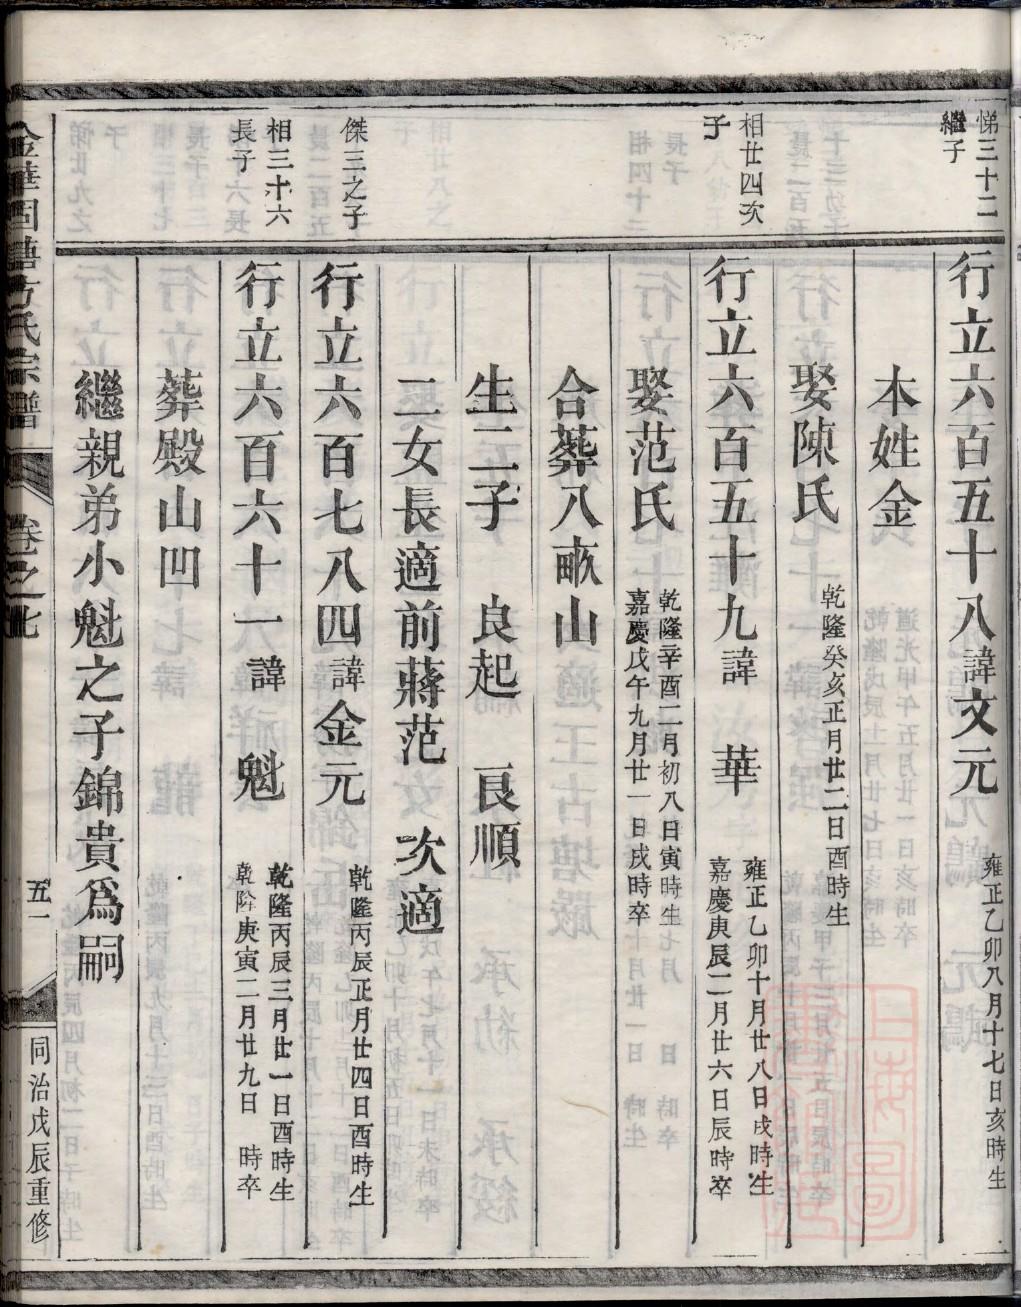 悌三十二
繼子
行立六百五十八諱文元
雍正乙卯八月十七日亥時生
本姓金
娶陳氏
乾隆癸亥正月廿二日酉時生
相廿四次
子
行立六百五十九諱 華
雍正乙卯十月廿八日戌時生
嘉慶庚辰二月廿六日辰時卒
娶范氏
乾隆辛酉二月初八日寅時生
嘉慶戊午九月廿一日戌時卒
合葬八畝山
生二子 良起 良順
二女長適前蔣范 次適
傑三之子
行立六百七八四諱金元
乾隆丙辰正月廿四日酉時生
相三十六
長子
行立六百六十一諱 魁
乾隆丙辰三月廿一日酉時生
乾隆庚寅二月廿九日 時卒
葬殿山凹
繼親弟小魁之子錦貴爲嗣
金華固塘方氏宗譜
卷之
五一
同治戊辰重修